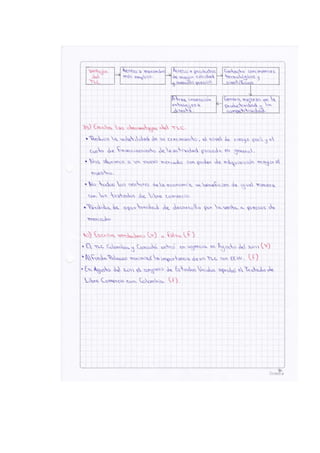 Ventajas del TLC
Acceso a mercados más amplios.
Acceso a productos de mayor calidad y menores precios
Contacto con nuevas tecnologías y
Atrae inversión extranjera directa
Genera mejoras en la productividad y la competitividad
Escriba las desventajas del TLC.
• Reduce la volatilidad de su crecimiento, el nivel de riesgo país y el
costo de financiamiento de la actividad privada en general.
• Nos a un nuevo mercado con poder de adquisición mayor al
nuestro.
• No todos los sectores de la economía se benefician de igual manera
con los tratados de libre comercio
• Pérdida de oportunidad de desarrollo por la venta a precios de
mercado
Escriba verdadero (V) o falso (F)
• El TLC Colombia y Canadá entró en vigencia en Agosto del 2011 (V)
• Alfredo Palacio la importancia de un TLC con EE.UU. (F)
• En Agosto del 2011 el congreso de Estados Unidos aprobó el Tratado de
Libre Comercio con Colombia (F).